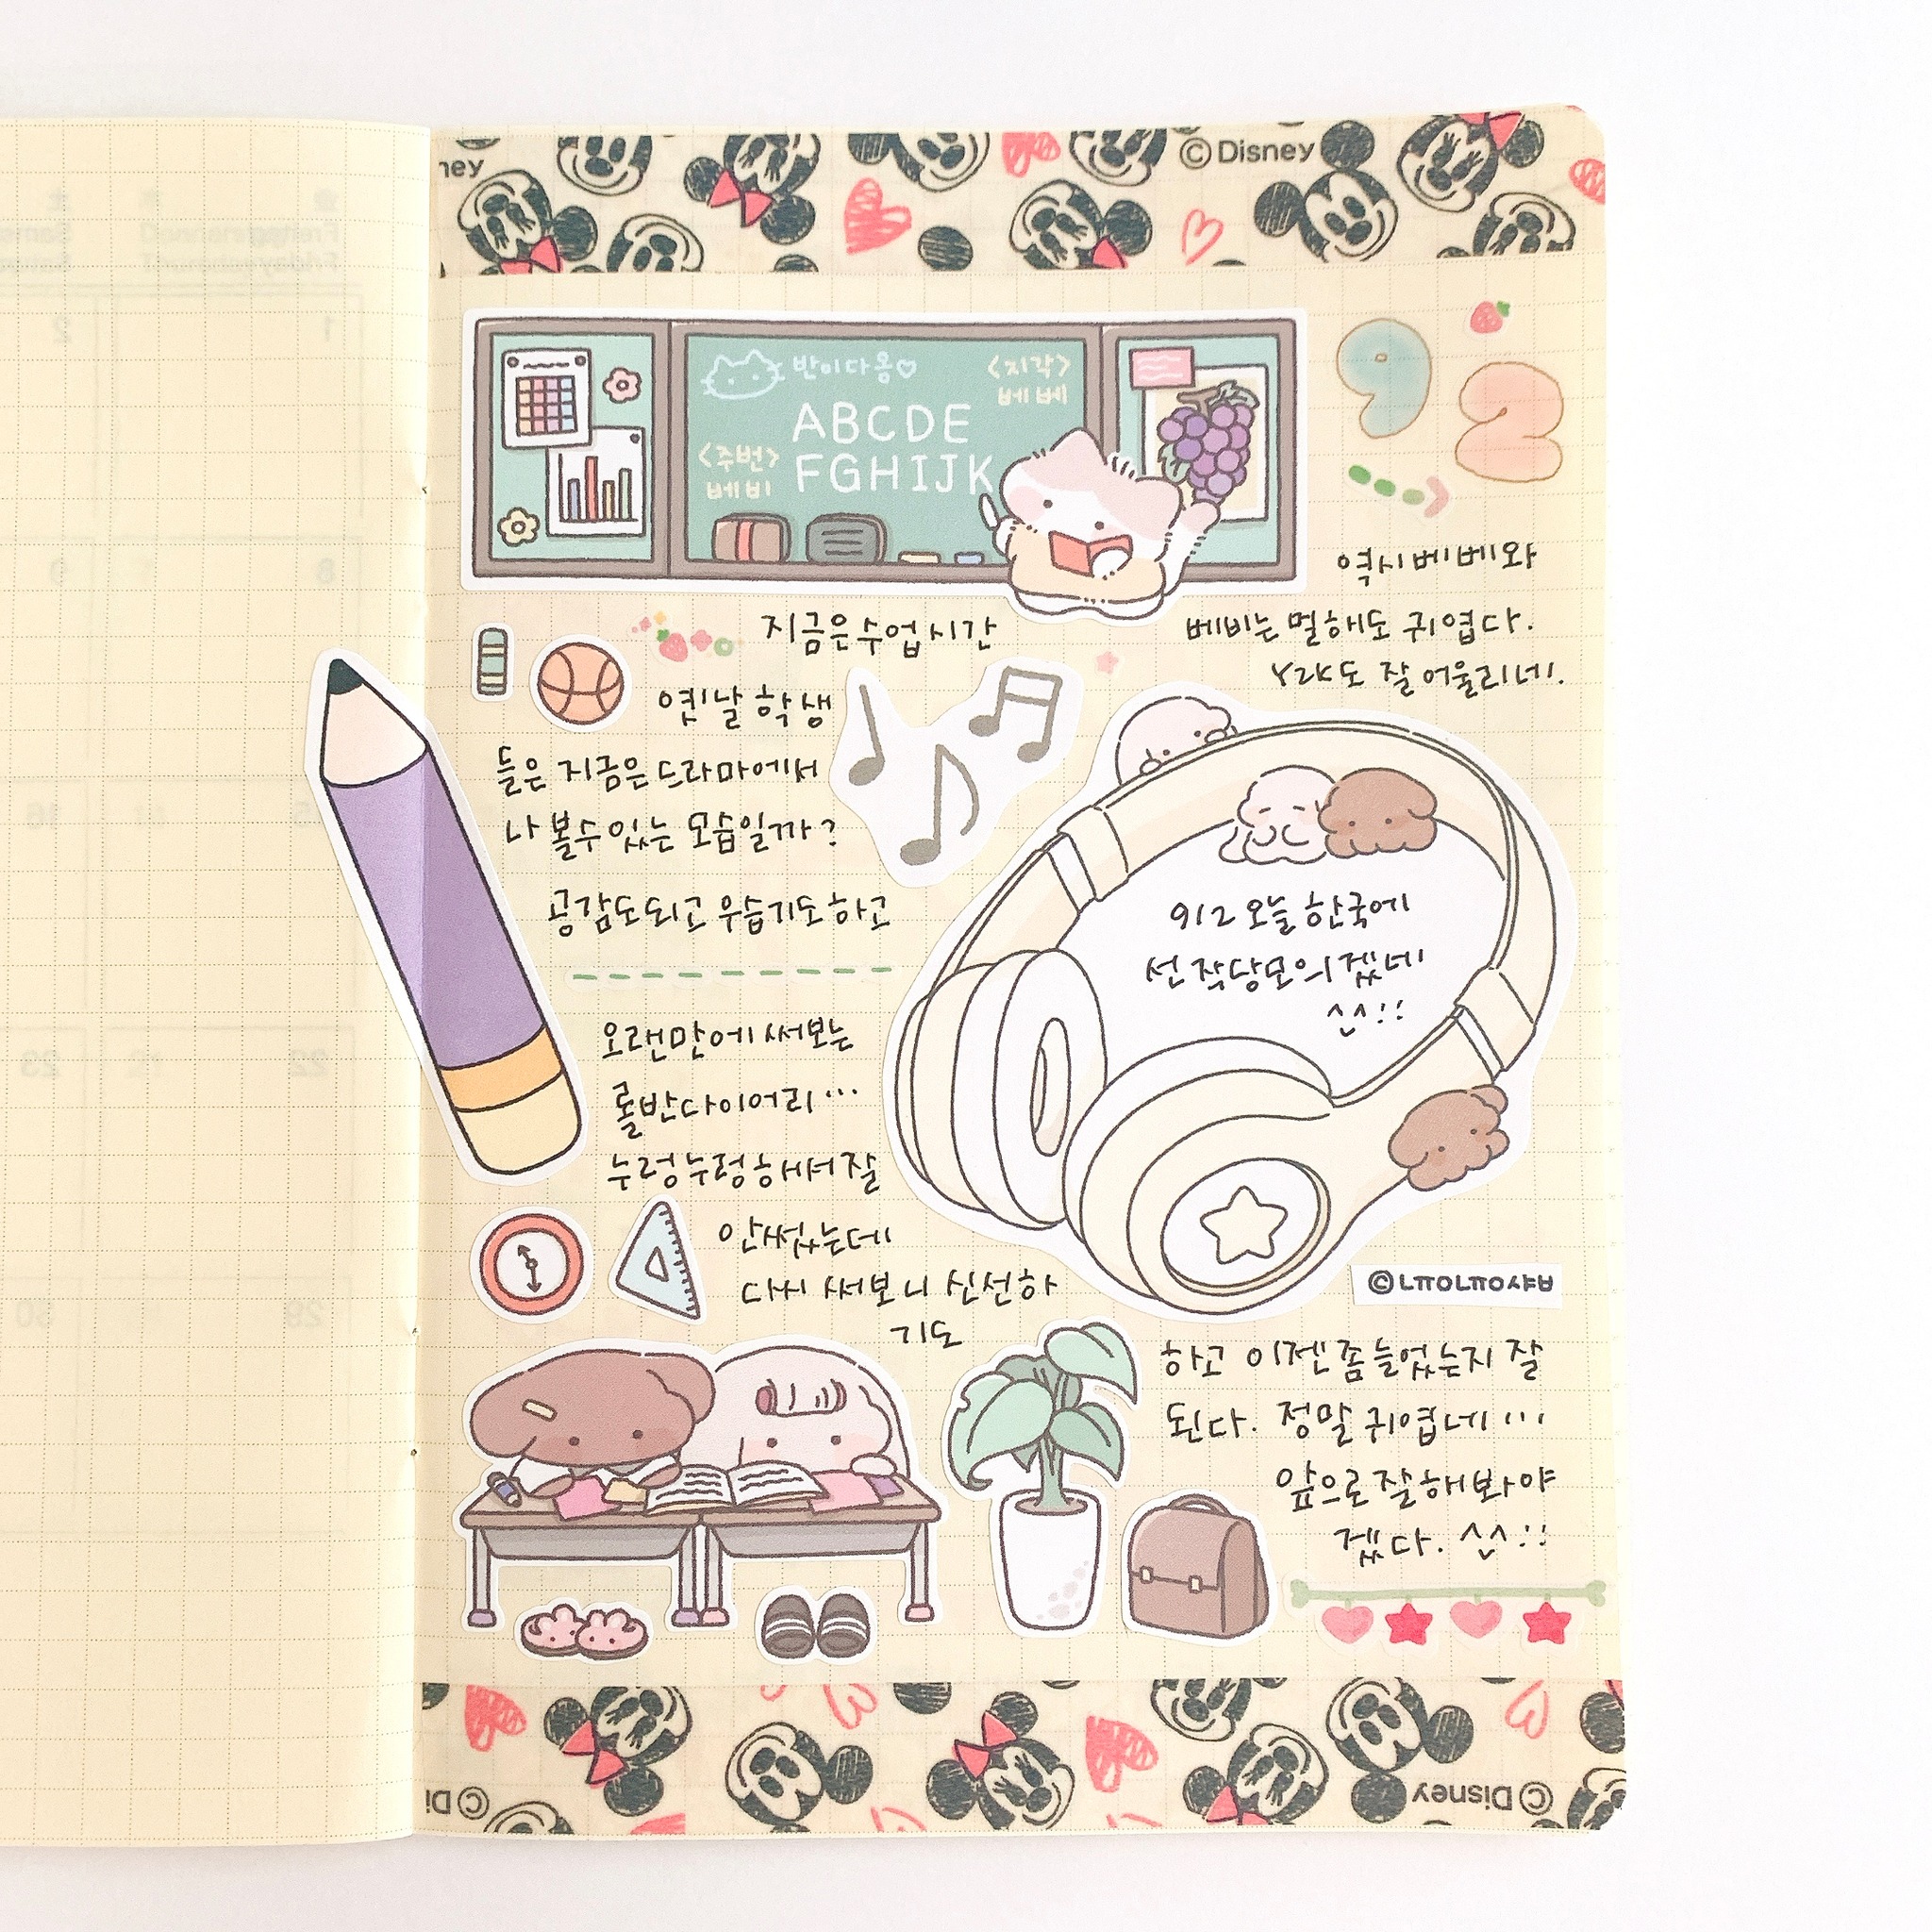 ©Disney
반이다옹♡
<지각>
베베
ABCDE
FGHIJK
<주번>
베비
92
역시 베베와
베비는 멀해도 귀엽다.
Y2K도 잘 어울리네.
지금은 수업시간
옛날 학생
들은 지금은 드라마에서
나 볼수 있는 모습일까?
공감도되고 우습기도하고
912 오늘 한국에
선 작당모의겠네
^^!!
오랜만에 써보는
롤반다이어리...
누렁누렁해서 잘
안썼는데
다시 써보니 신선하
기도
©ㄴㅠㅇㄴㅠㅇ샤ㅂ
하고 이젠 좀 늘었는지 잘
된다. 정말 귀엽네...
앞으로 잘해봐야
겠다. ^^!!
©Disney